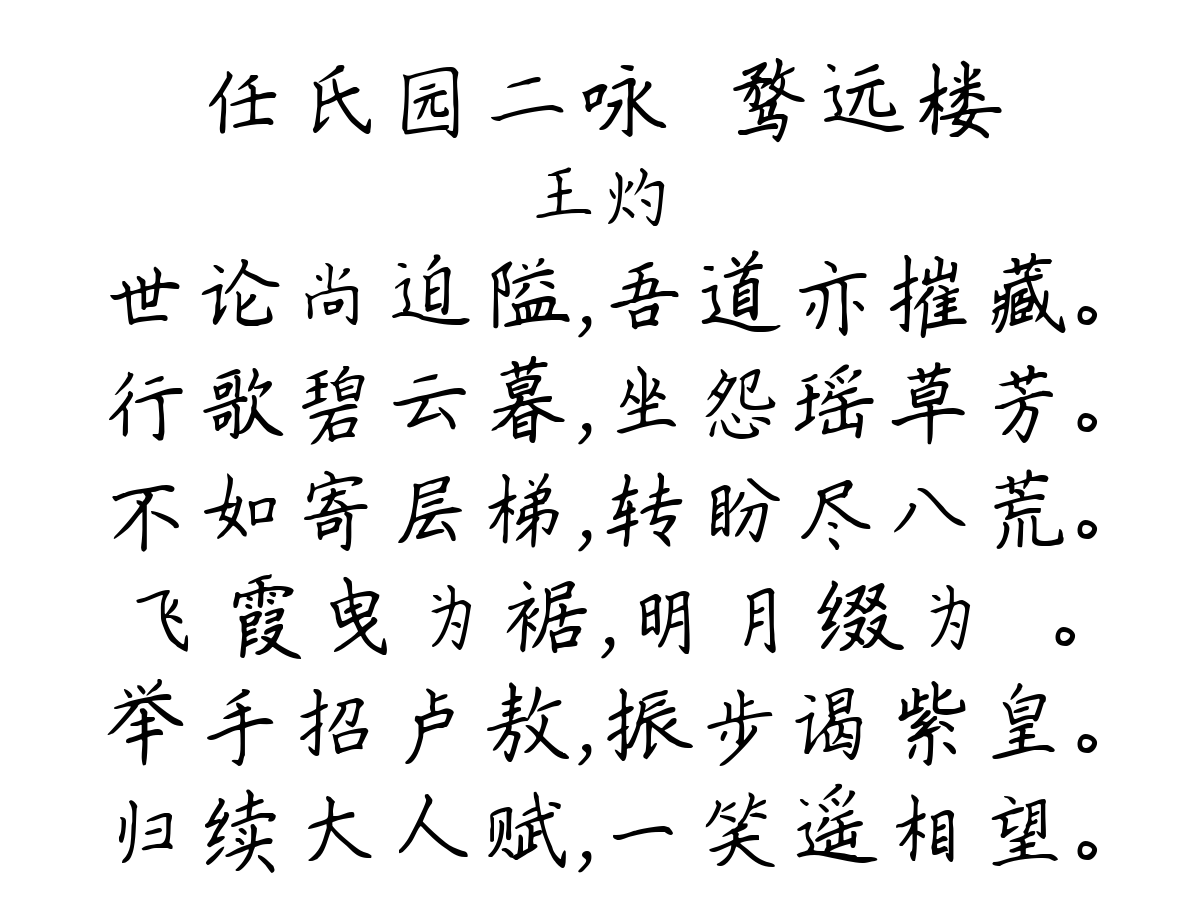 任氏园二咏 鹜远楼
王灼
世论尚迫隘,吾道亦摧藏。
行歌碧云暮,坐怨瑶草芳。
不如寄层梯,转盼尽八荒。
飞霞曳为裾,明月缀为 。
举手招卢敖,振步谒紫皇。
归续大人赋,一笑遥相望。